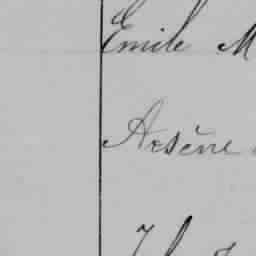 Emile M
Arsène